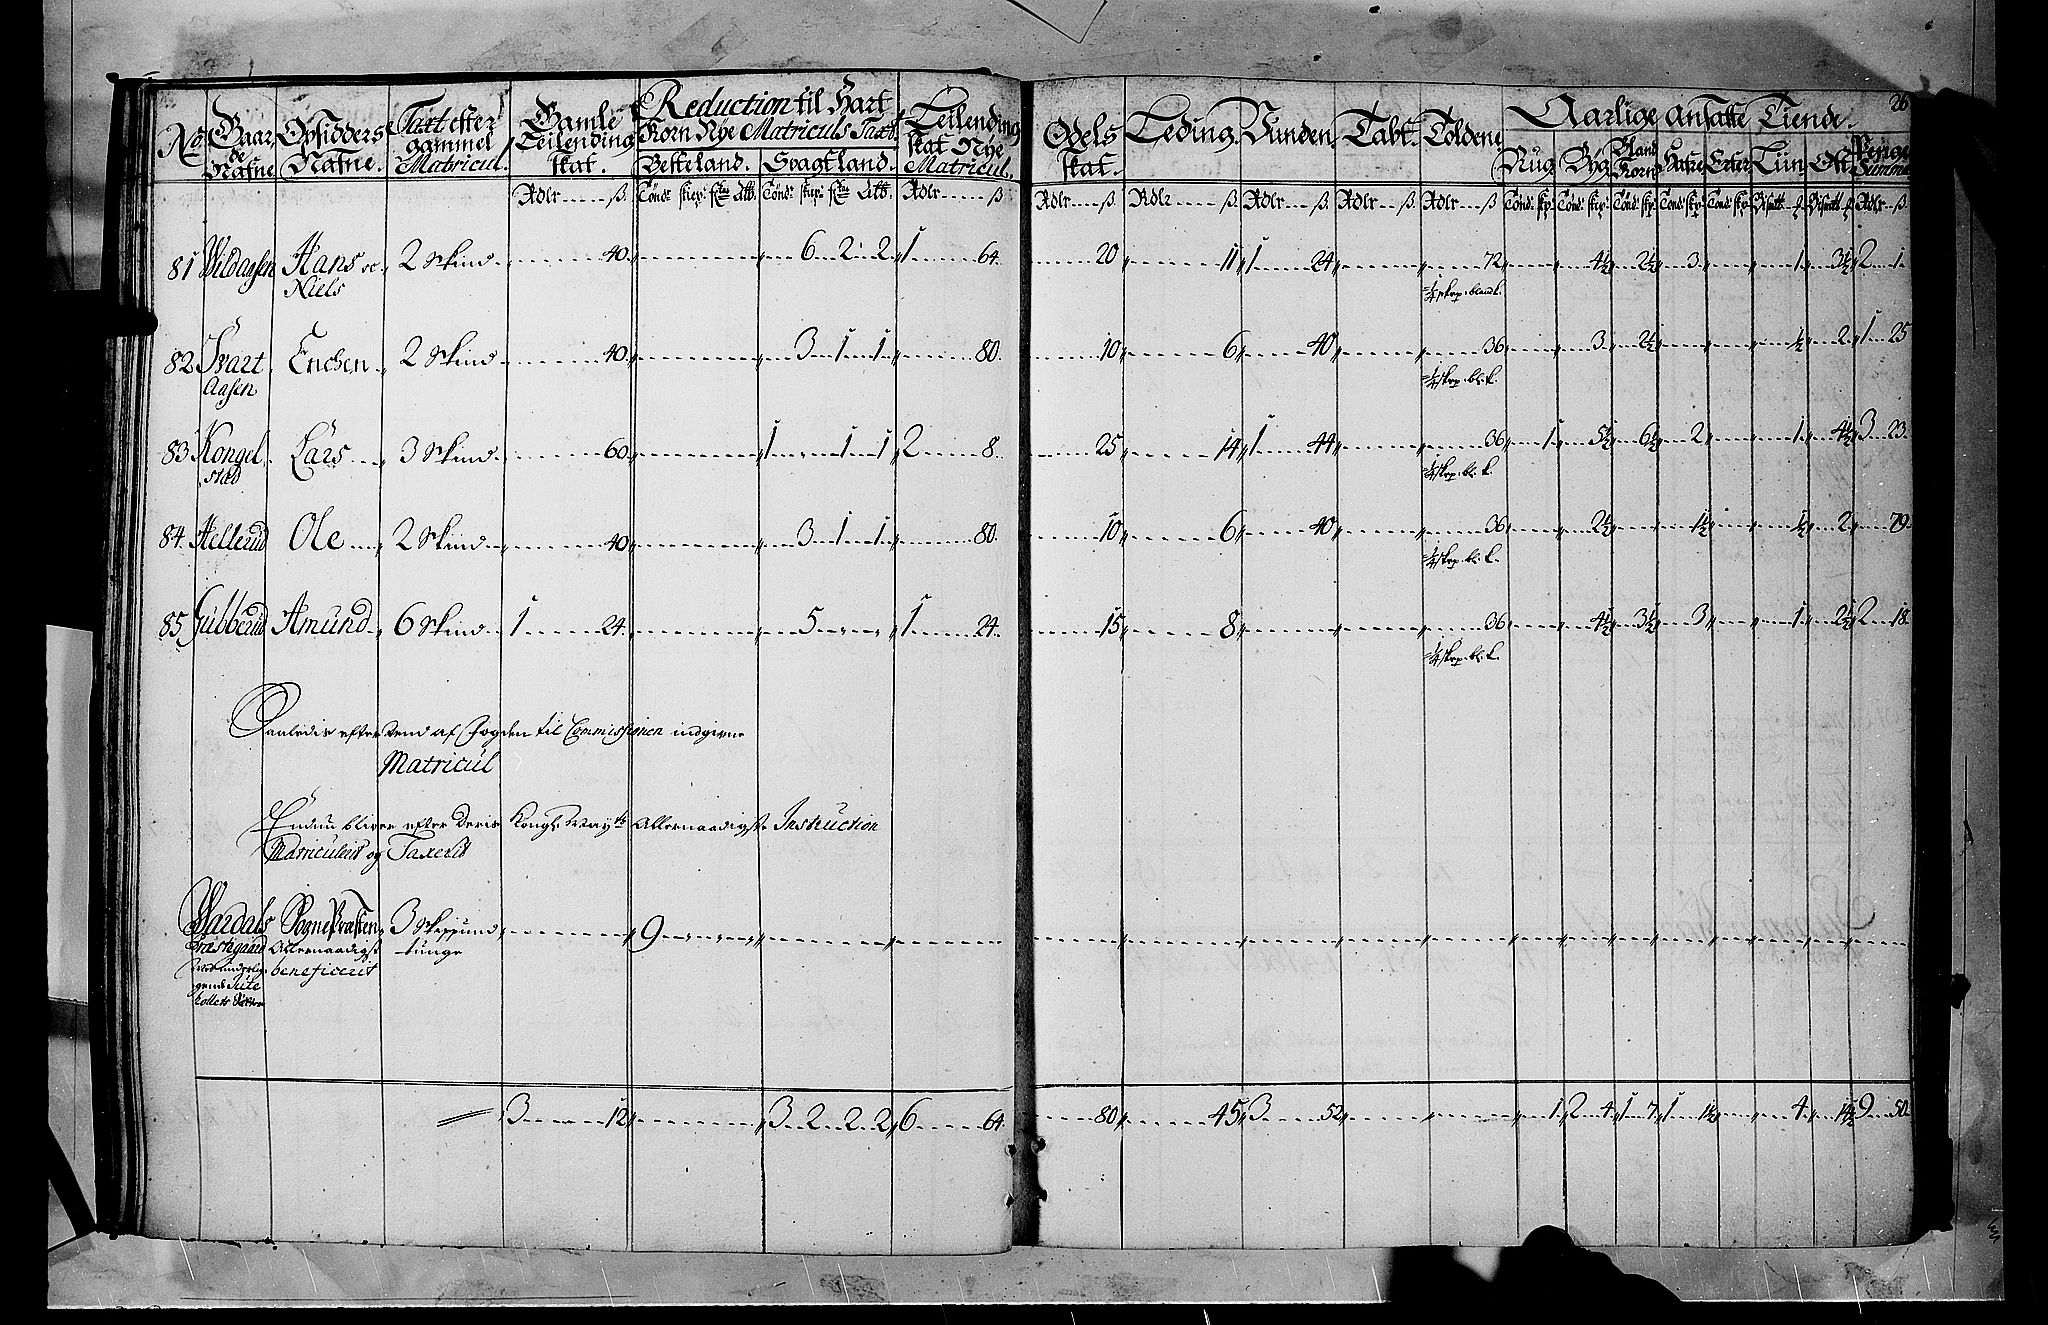 26
No Gaar de Nafne Opsidders Nafne. Taxt efter gammel Matricul. Gamle Leilending skat. Reduction til Hart Korn Nye Matriculs Taxt Leilending skat Nye Matricul.
Besteland. Svagtland.
Odels skat. Leding. Vunden. Tabt. Toldene Aarlige Ansatte Tiende.
Rug Byg Bland Korn Hafre Erter Liin Ost Penge Summa
Rdlr ß. Tönd: skep: Alb. Tönd: skep: Alb. Rdlr ß
Rdlr ß. Rdlr ß. Rdlr ß. Rdlr ß Rdlr ß Tönd: skp: Tönd: skp: Tönd: skp: Tönd: skp: Tönd: skp: Rdlr ß
81 Vildaasen Hans oc 2 Skind 40 6 2 2 1 64 20 11 1 24 72 4½ 2½ 3 1 3½ 2 1
Niels ¼ skep. bland k.
82 Svart Enchen 2 Skind 40 3 1 1 80 10 6 40 36 3 2½ ½ 2 1 25
Aasen ¼ skep. bl. k.
83 Kongel Lars 3 Skind 60 1 1 1 2 8 25 14 1 44 36 1 5½ 6½ 2 1 4½ 3 23
sted ¼ skep. bl. k.
84 Hellerud Ole 2 Skind 40 3 1 1 80 10 6 40 36 2½ 1½ ½ 2 79
¼ skep. bl. k.
85 Gubberud Amund 6 Skind 1 24 5 1 24 15 8 36 4½ 3½ 3 1 2½ 2 18
¼ skep. bl. k.
Saaledis efter dend af Fogden til Commissionen indgivne
Matricul
Endnu bliver efter Deris Kongl. Mayts Allernaadigste Instruction
Matriculerit og Taxerit
Wardals Sogne Præsten 3 Skippund 9
Præstegaard Allernaadigst tunge
beneficerit
3 12 3 2 2 2 6 64 80 45 3 52 1 2 4 1 7 1 1½ 4 14½ 9 50